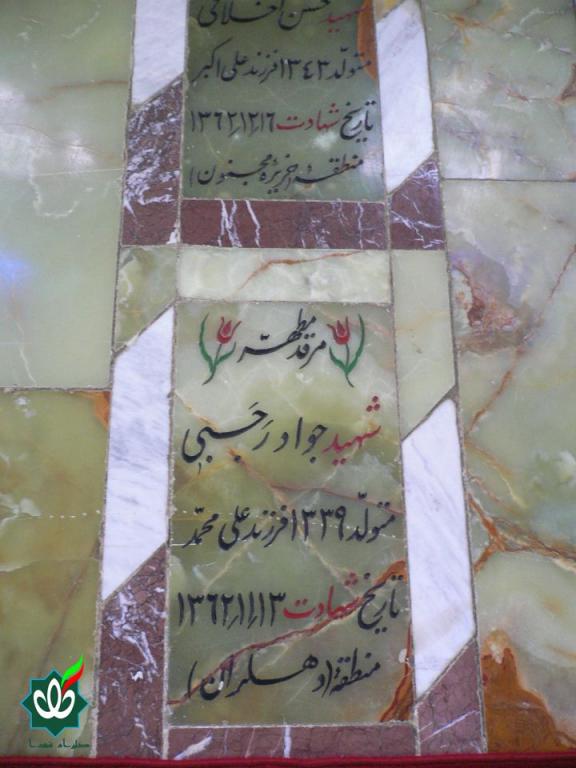 شهید حسن اخلاقی
متولّد ۱۳۴۳ فرزند علی اکبر
تاریخ شهادت ۱۳۶۲٫۱۲٫۱۶
منطقهٔ (جزیره مجنون)
مرقد مطهّر
شهید جواد رَجَبی
متولّد ۱۳۳۹ فرزند علی محمّد
تاریخ شهادت ۱۳۶۲٫۱٫۱۳
منطقهٔ (دهلران)